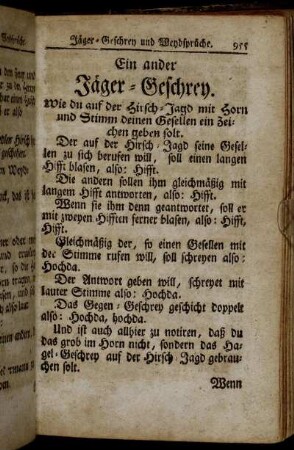 Jäger-Geschrey und Weydsprüche. 955
Ein ander
Jäger-Geschrey.
Wie du auf der Hirsch-Jagd mit Horn
und Stimm deinen Gesellen ein Zei-
chen geben solt.
Der auf der Hirsch-Jagd seine Gesel-
len zu sich berufen will, soll einen langen
Hifft blasen, also: Hifft.
Die andern sollen ihm gleichmäßig mit
langem Hifft antworten, also: Hifft.
Wenn sie ihm denn geantwortet, soll er
mit zweyen Hifften ferner blasen, also: Hifft,
Hifft.
Gleichmäßig der, so einen Gesellen mit
der Stimme rufen will, soll schreyen also:
Hochda.
Der Antwort geben will, schreyet mit
lauter Stimme also: Hochda.
Das Gegen-Geschrey geschicht doppelt
also: Hochda, hochda.
Und ist auch allhier zu notiren, daß du
das grob im Horn nicht, sondern das Ha-
gel-Geschrey auf der Hirsch Jagd gebrau-
chen solt.
Wenn